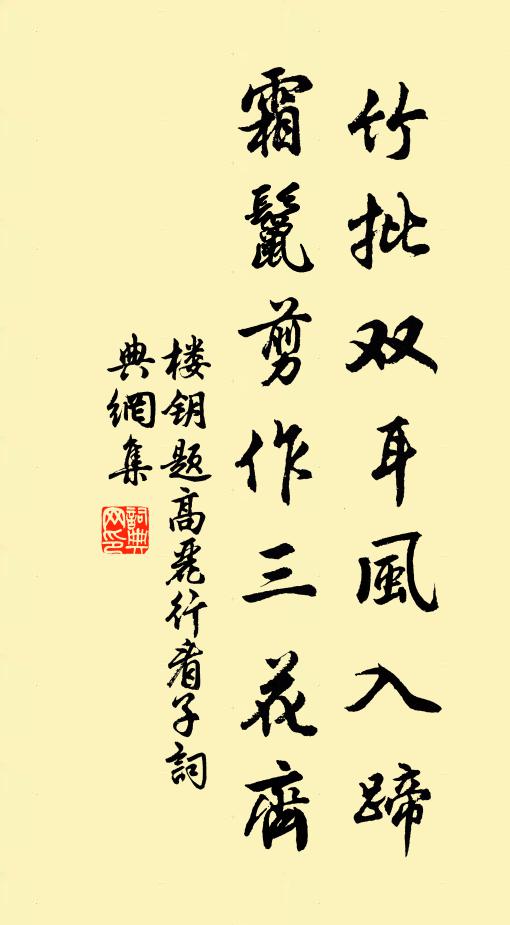 竹批双耳風入蹄
霜鬣剪作三花齊
楼钥题高麗行看子詞
典網集
詞典
网印